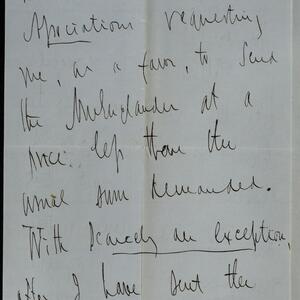 Associations requesting
me, as a favor, to send
the Michelander at a
price less than the
usual sum demanded.
With scarcely an exception,
after I have sent the